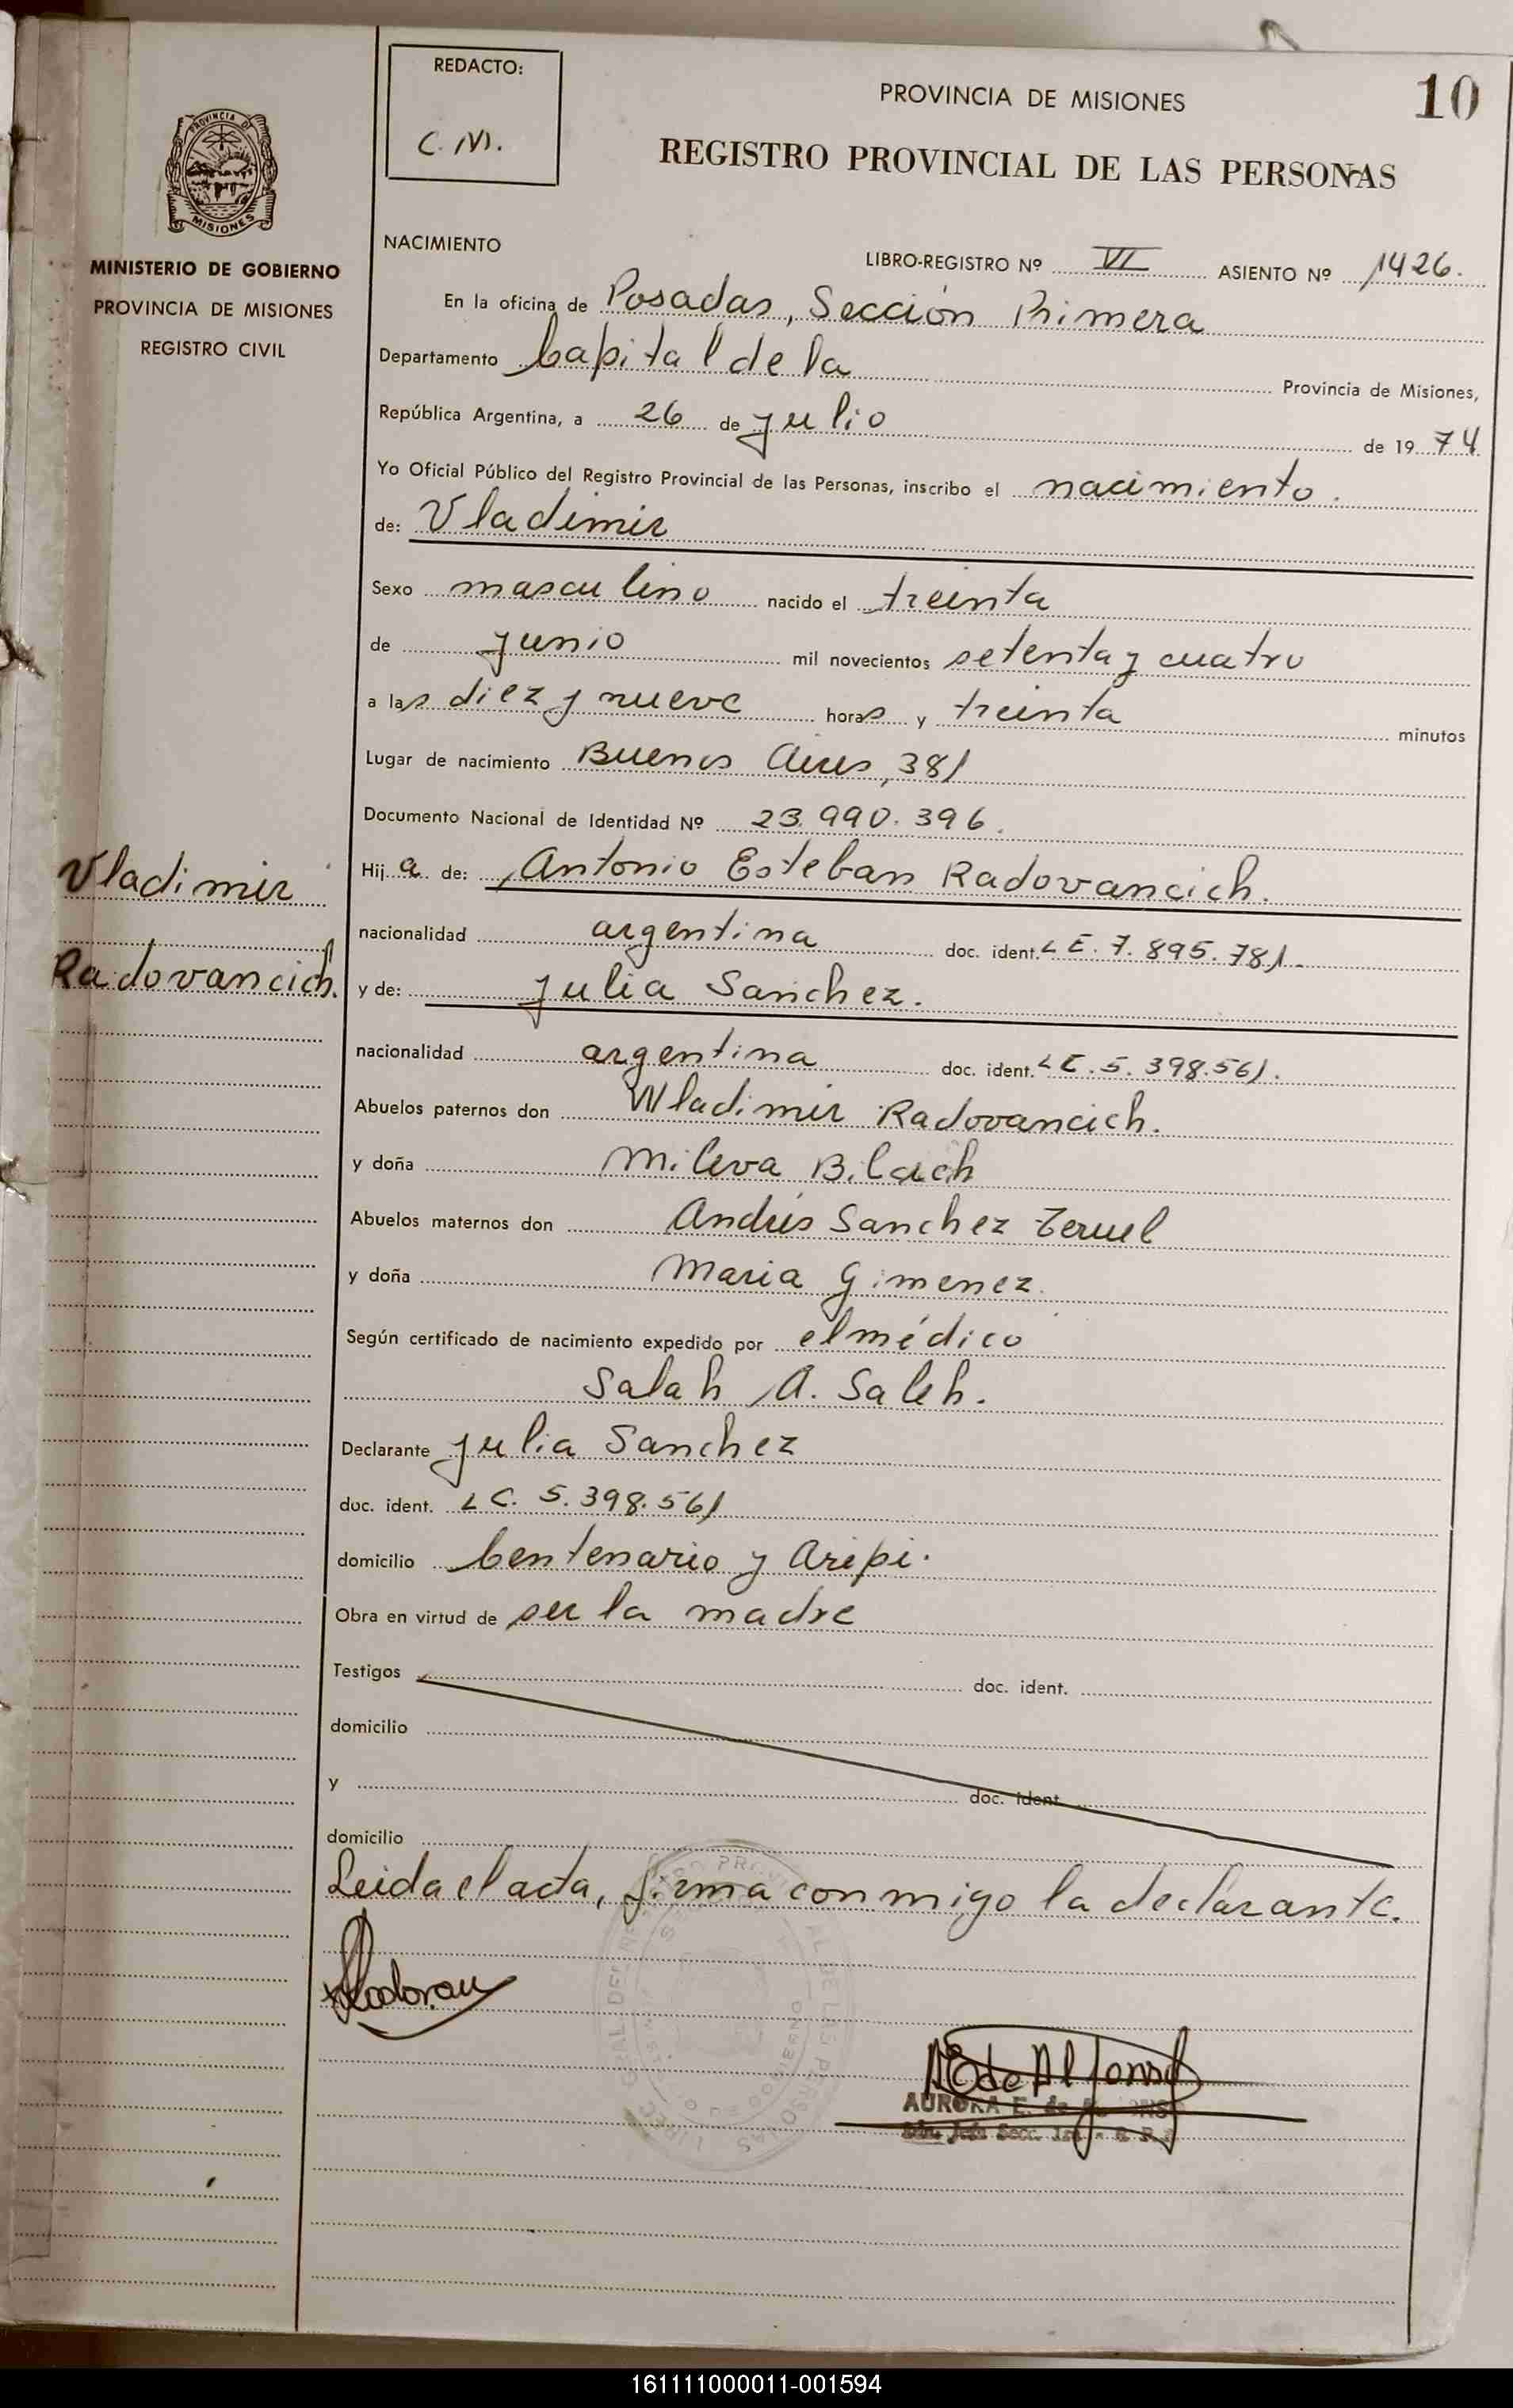 REDACTO:
C. M.
PROVINCIA DE MISIONES
10
REGISTRO PROVINCIAL DE LAS PERSONAS
PROVINCIA DE
MISIONES
MINISTERIO DE GOBIERNO
PROVINCIA DE MISIONES
REGISTRO CIVIL
NACIMIENTO
LIBRO-REGISTRO Nº VI ASIENTO Nº 1426.
En la oficina de Posadas, Sección Primera
Departamento Capital de la Provincia de Misiones,
República Argentina, a 26 de julio de 1974
Yo Oficial Público del Registro Provincial de las Personas, inscribo el nacimiento.
de: Vladimir
Sexo masculino nacido el treinta
de junio mil novecientos setenta y cuatro
a las diez y nueve horas y treinta minutos
Lugar de nacimiento Buenos Aires, 381
Documento Nacional de Identidad Nº 23.990.396.
Vladimir
Radovancich.
Hija de: Antonio Esteban Radovancich.
nacionalidad argentina doc. ident. L E. 7.895.781.
y de: Julia Sanchez.
nacionalidad argentina doc. ident. L C. 5.398.561.
Abuelos paternos don Wladimir Radovancich.
y doña Mileva
Abuelos maternos don Andrés Sanchez Teruel
y doña Maria Gimenez.
Según certificado de nacimiento expedido por el médico
Salah A. Saleh.
Declarante Julia Sanchez
doc. ident. L C. 5.398.561
domicilio Centenario y Aripi.
Obra en virtud de ser la madre
Testigos doc. ident.
domicilio
y doc. ident.
domicilio
Leida el acta, firma conmigo la declarante.
AURORA E. de
161111000011-001594